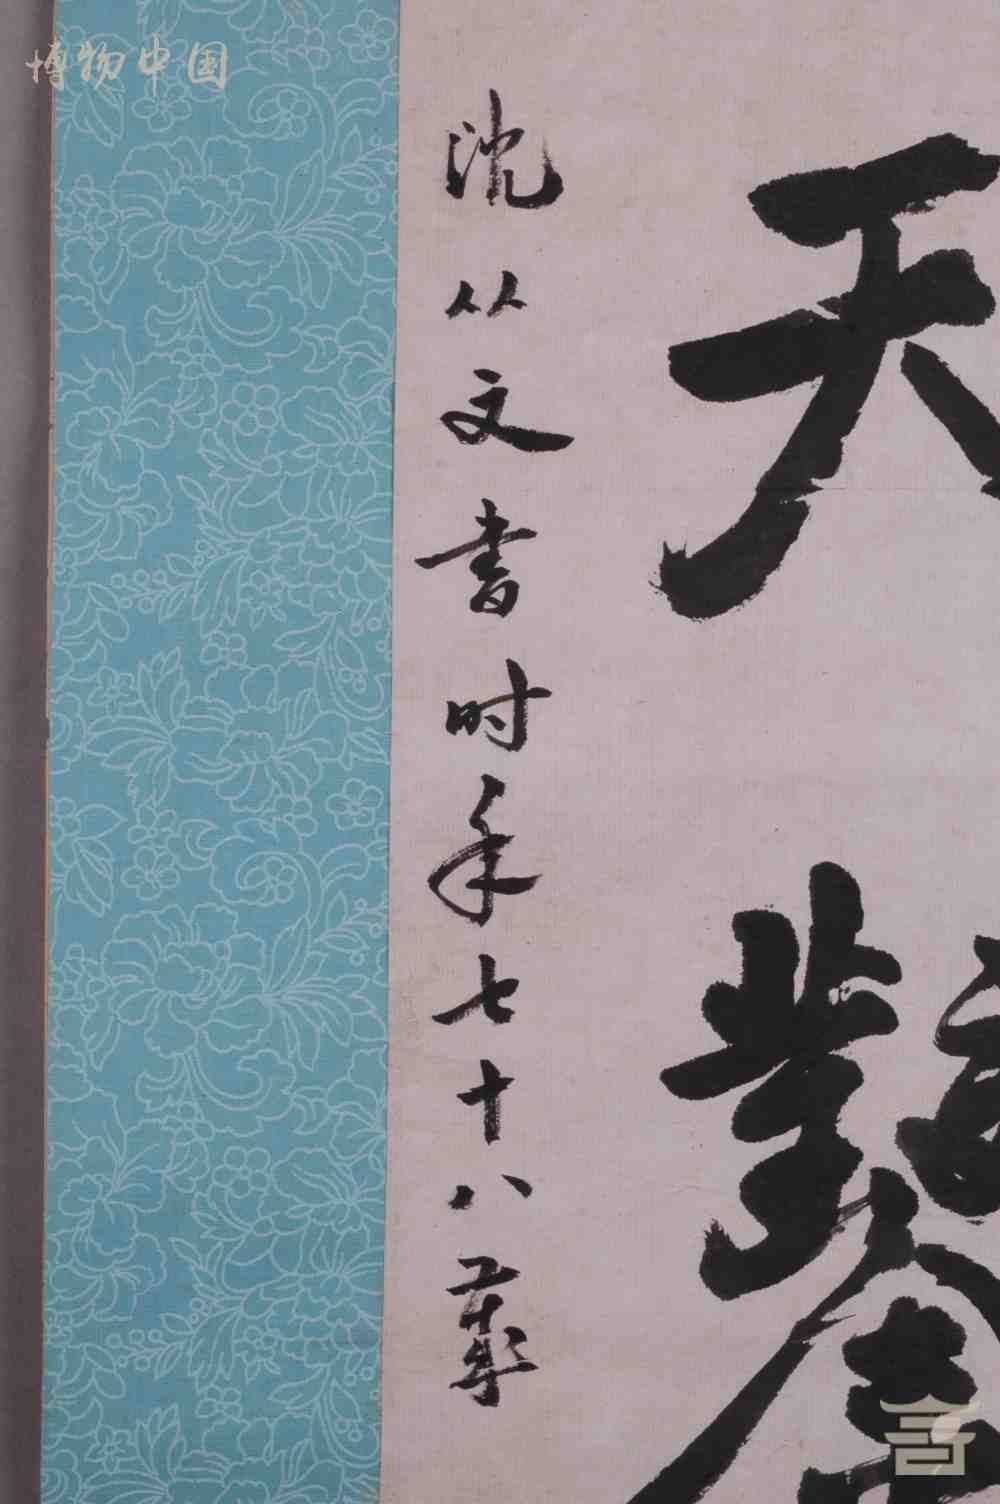 博物中国
天鑿
沈从文書时年七十八